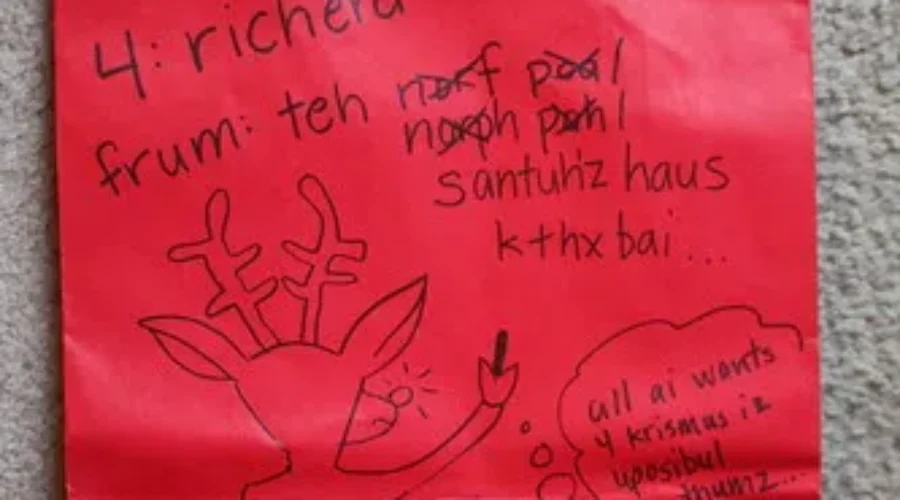 4: richerd
frum: teh norf
norph pohl
santuh'z haus
kthx bai...
all ai wants
4 krismus iz
uposibul
thumz...